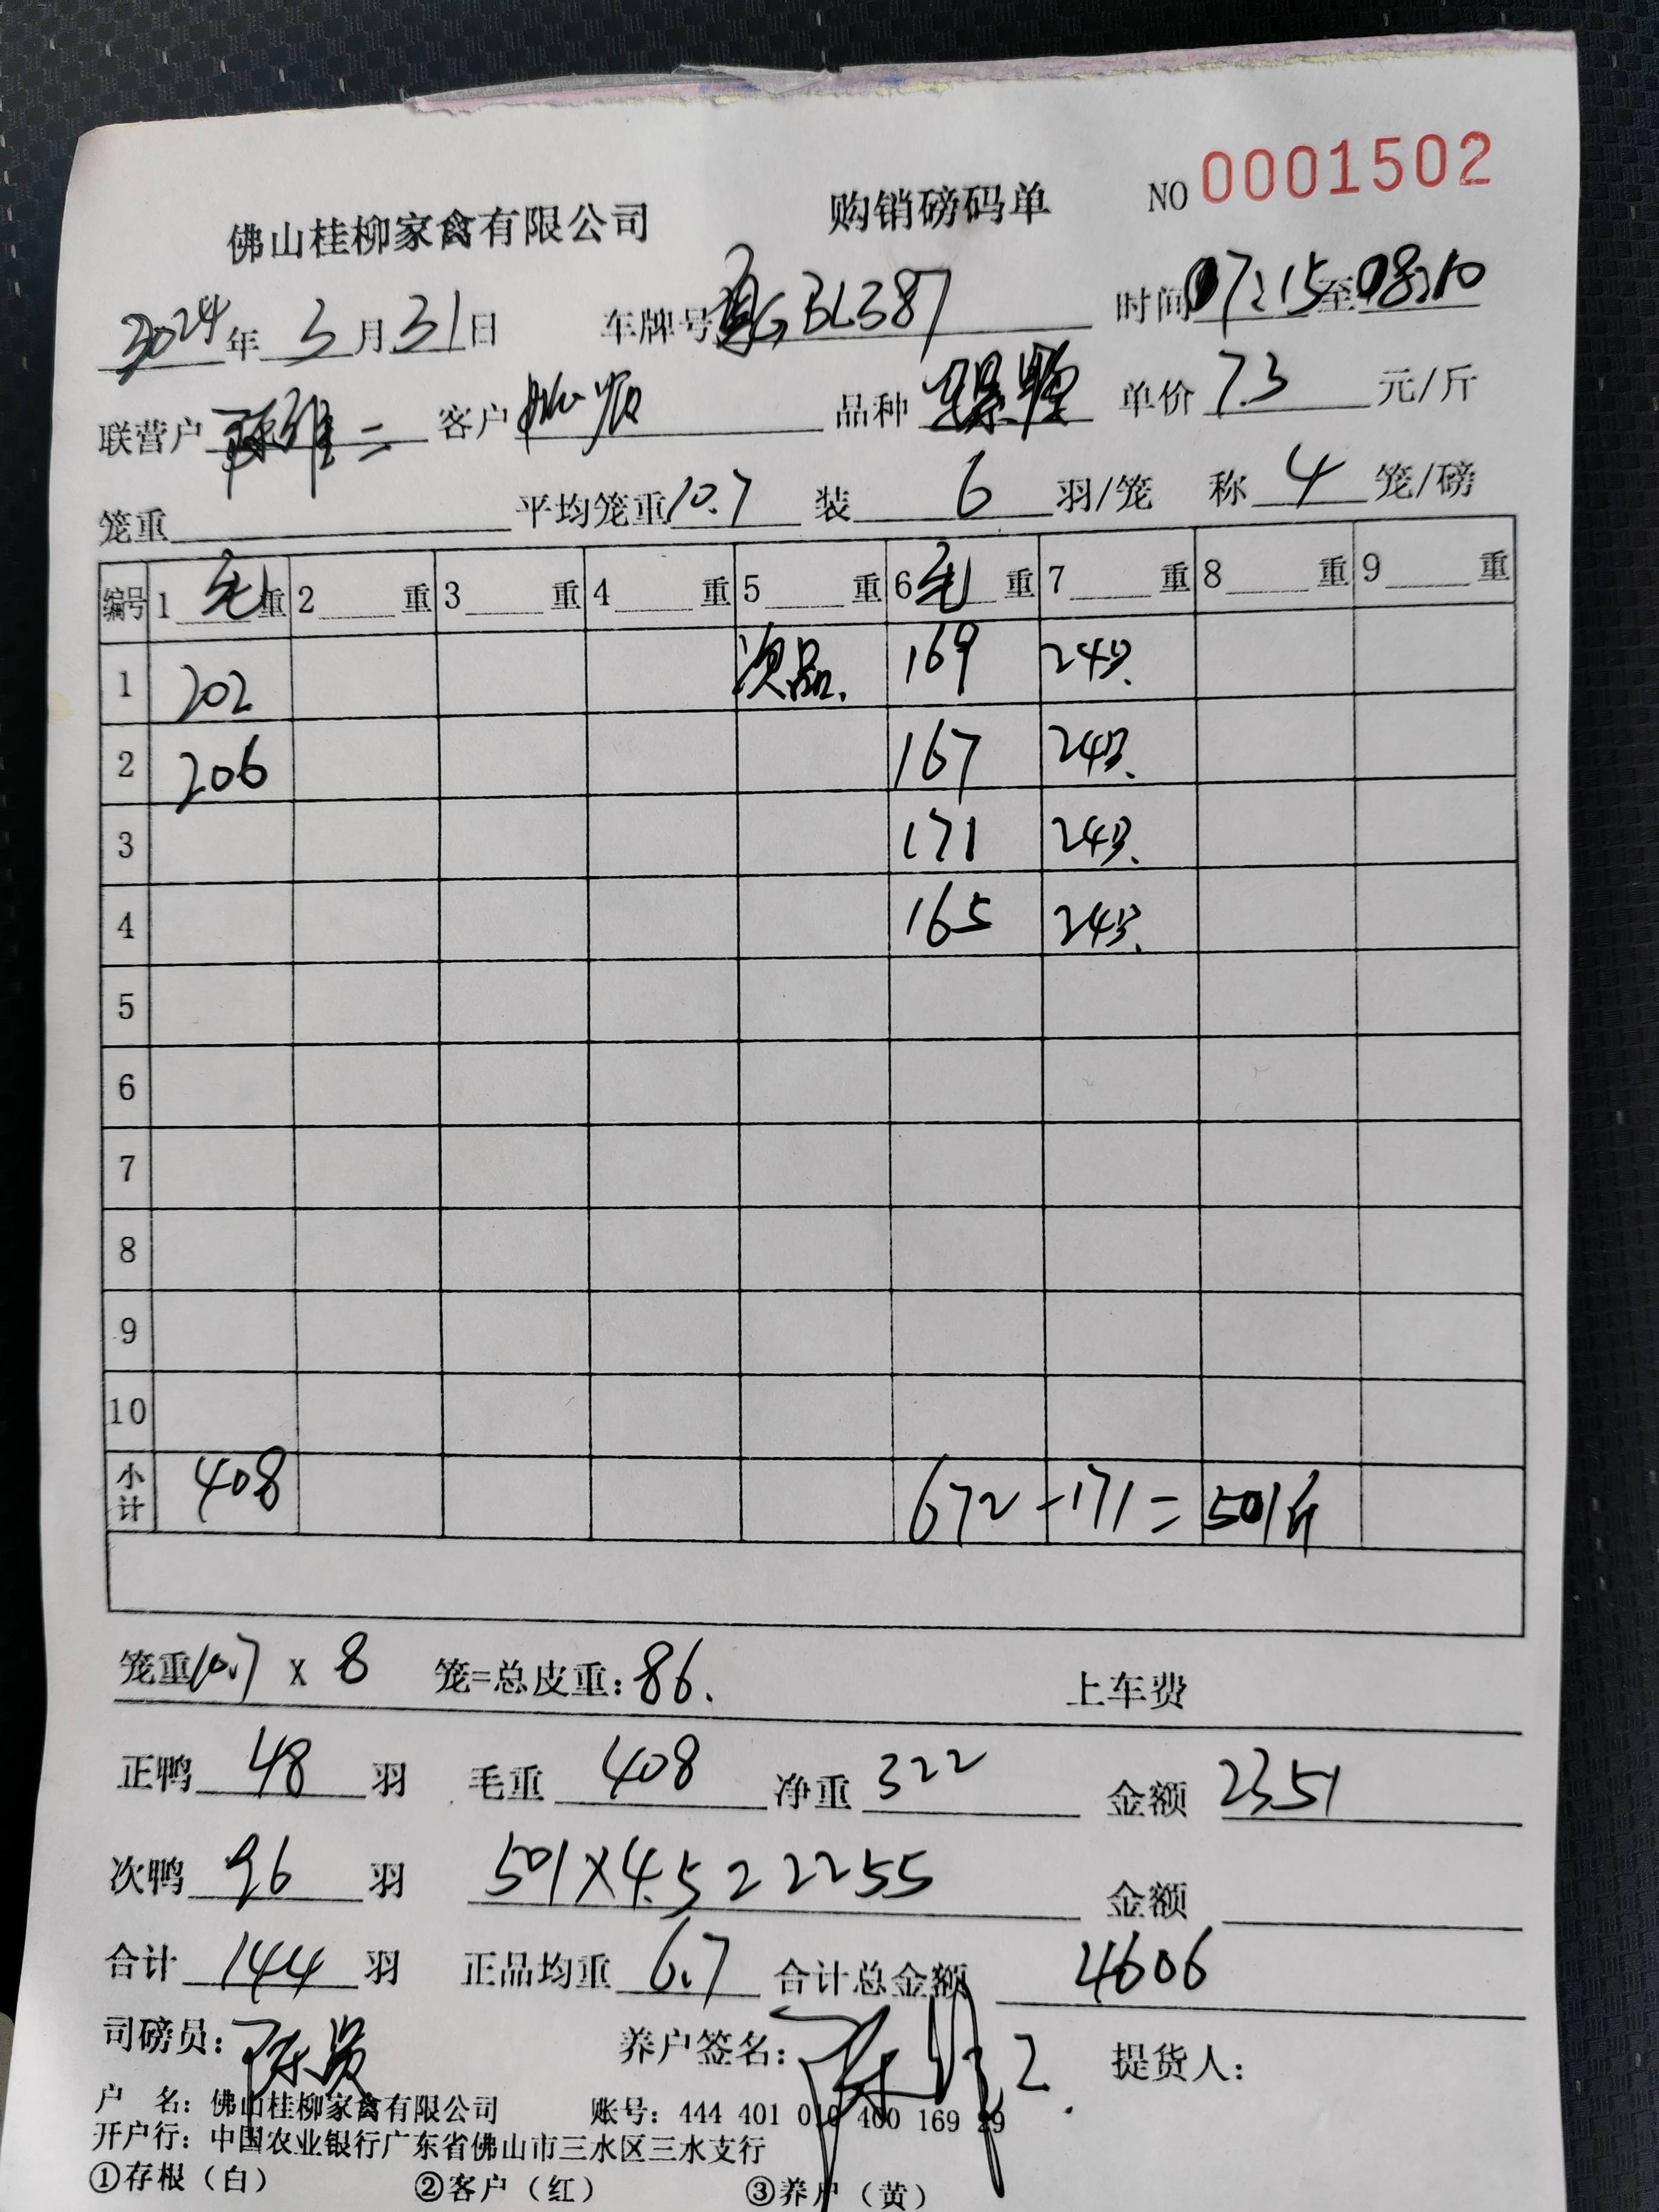 佛山桂柳家禽有限公司 购销磅码单 NO 0001502
2024年 3月31日 车牌号 BL387 时间 07:15至08:10
联营户 二 客户 品种 单价 7.3 元/斤
笼重 平均笼重 10.7 装 6 羽/笼 称 4 笼/磅
编号 1 毛 重 2 重 3 重 4 重 5 重 6 毛 重 7 重 8 重 9 重
1 202 次品. 169 24羽.
2 206 167 24羽.
3 171 24羽.
4 165 24羽.
5
6
7
8
9
10
小计 408 672-171=501斤
笼重 10.7 x 8 笼=总皮重: 86. 上车费
正鸭 48 羽 毛重 408 净重 322 金额 2351
次鸭 96 羽 501×4.5=2255 金额
合计 144 羽 正品均重 6.7 合计总金额 4606
司磅员: 养户签名: 提货人:
户 名: 佛山桂柳家禽有限公司 账号: 444 401 010 400 169 29
开户行: 中国农业银行广东省佛山市三水区三水支行
①存根（白） ②客户（红） ③养户（黄）